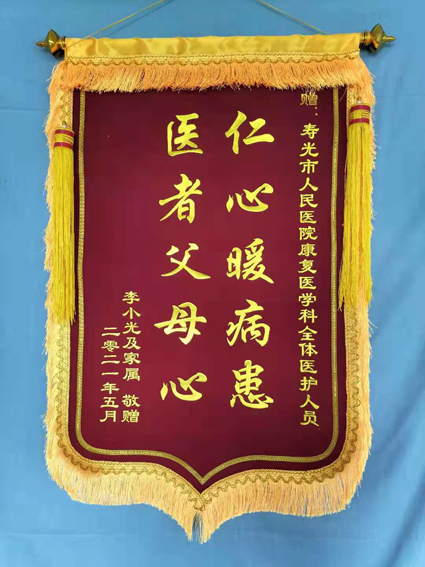 赠：寿光市人民医院康复医学科全体医护人员
仁心暖病患
医者父母心
李小光及家属 敬赠
二零二一年五月